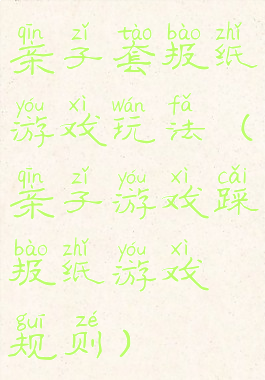 qīn zǐ tào bào zhǐ
亲子套报纸
yóu xì wán fǎ
游戏玩法（
qīn zǐ yóu xì cǎi
亲子游戏踩
bào zhǐ yóu xì
报纸游戏
guī zé
规则）